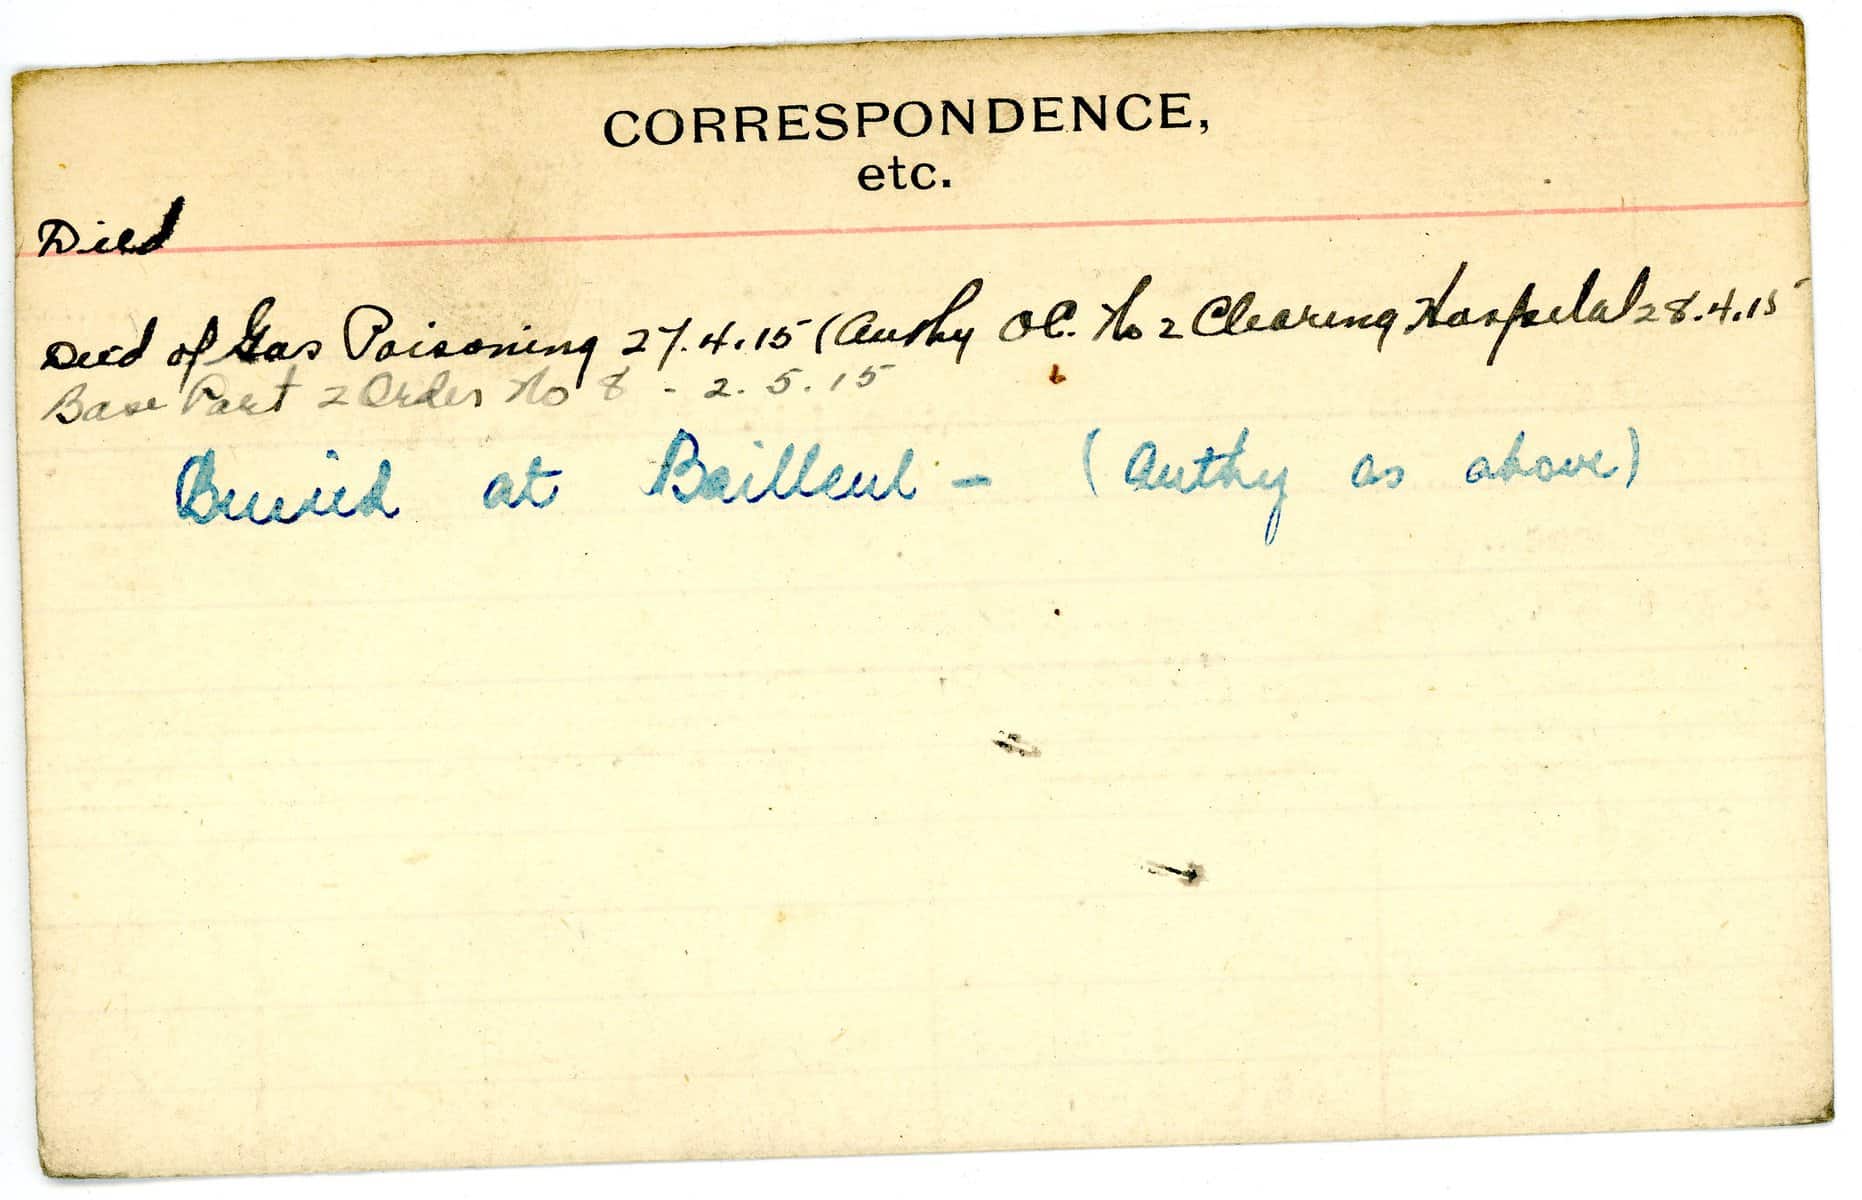 CORRESPONDENCE,
etc.
Died
Died of Gas Poisoning 27.4.15 (Authy OC. No 2 Clearing Hospital 28.4.15
Base Part 2 Order No 8 - 2.5.15
Buried at Bailleul - (Authy as above)